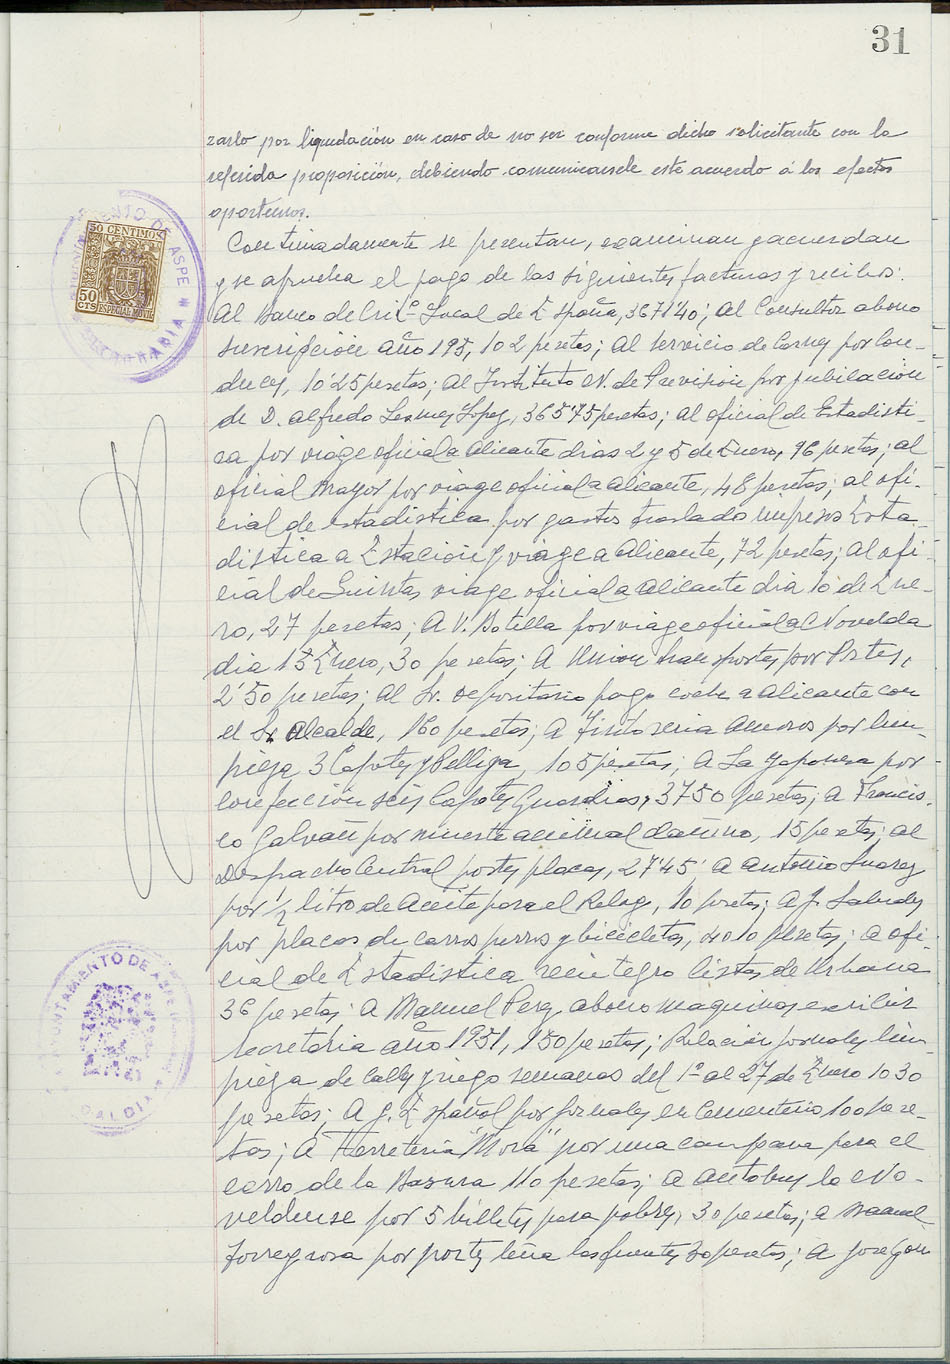 31
zarlo por liquidación en caso de no ser conforme dicho solicitante con la
referida proposición, debiendo comunicársele este acuerdo á los efectos
oportunos.
Continuadamente se presentan, examinan y acuerdan
y se aprueba el pago de las siguientes facturas y recibos:
Al Banco de Local de España, 367'40; Al Consultor abono
suscripción año 195, 102 pesetas; Al servicio de Carnes por Con-
duces, 10'25 pesetas; Al Instituto N. de Previsión por jubilación
de D. Alfredo López, 365'75 pesetas; al oficial de Estadísti-
ca por viage oficial a Alicante dias 2 y 5 de Enero, 96 pesetas; al
oficial Mayor por viage oficial a Alicante, 48 pesetas; al ofi-
cial de estadistica por gastos traslado impresos Esta-
distica a Estación y viage a Alicante, 72 pesetas; Al ofi-
cial de Quintas viage oficial a Alicante dia 10 de Ene-
ro, 27 pesetas; A V. Botella por viage oficial a Novelda
dia 15 Enero, 30 pesetas; A Union transportes por Portes,
2'50 pesetas; Al Sr. Depositario pago coche a Alicante con
el Sr. Alcalde, 160 pesetas; A Tintoreria Amoros por lim-
pieza 3 Capotes y Pelliza, 105 pesetas; A La Japonesa por
confección seis Capotes Guardias, 3750 pesetas; a Francis-
co Galvañ por muerte animal dañino, 15 pesetas; al
Despacho Central portes placas, 27'45; a Antonio Suarez
por 1/2 litro de Aceite para el Reloj, 10 pesetas; A J.
por placas de carros perros y bicicletas, pesetas; a ofi-
cial de Estadistica reintegro listas de Urbana
36 pesetas; a Manuel Perez abono maquinas escribir
Secretaria año 1951, 150 pesetas; Relación jornales lim-
pieza de Calles y riego semanas del 1º al 27 de Enero 1030
pesetas; A J. Español por jornales en Cementerio 100 pese-
tas; A Ferreteria "Mora" por una campana para el
carro de la Basura 110 pesetas; a autobus la No-
veldense por 5 billetes para pobres, 30 pesetas; a Manuel
Torregrosa por portes leña las fuentes 30 pesetas; A Jose Gon
50 CENTIMOS
50
CTS
ESPECIAL MOVIL
AYUNTAMIENTO DE ASPE
SECRETARIA
AYUNTAMIENTO DE ASPE
ALCALDIA